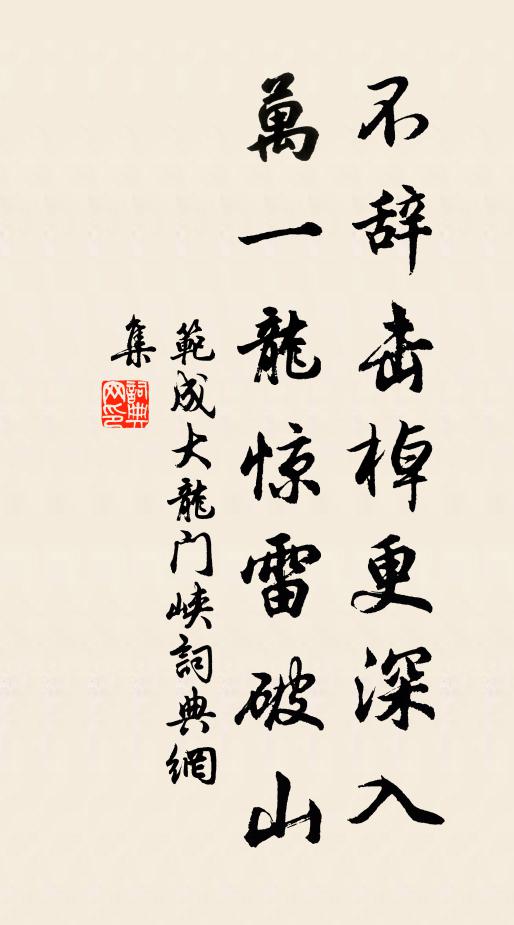 不辞击棹更深入
萬一龍惊雷破山
範成大龍门峡詞典網
集
詞典网印